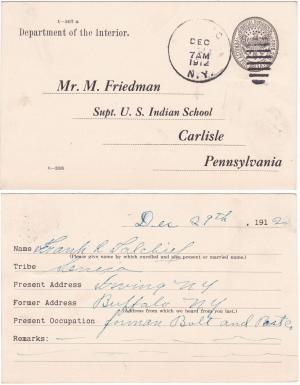 1-567 a
Department of the Interior.
DEC
7AM
1912
N.Y.
Mr. M. Friedman
Supt. U. S. Indian School
Carlisle
Pennsylvania
Dec 29th, 1912
Name Frank R Tallchief
(Please give name by which enrolled and also present or married name.)
Tribe Seneca
Present Address Irving NY
Former Address Buffalo NY
(Address from which we heard from you last.)
Present Occupation forman Bolt and
Remarks: